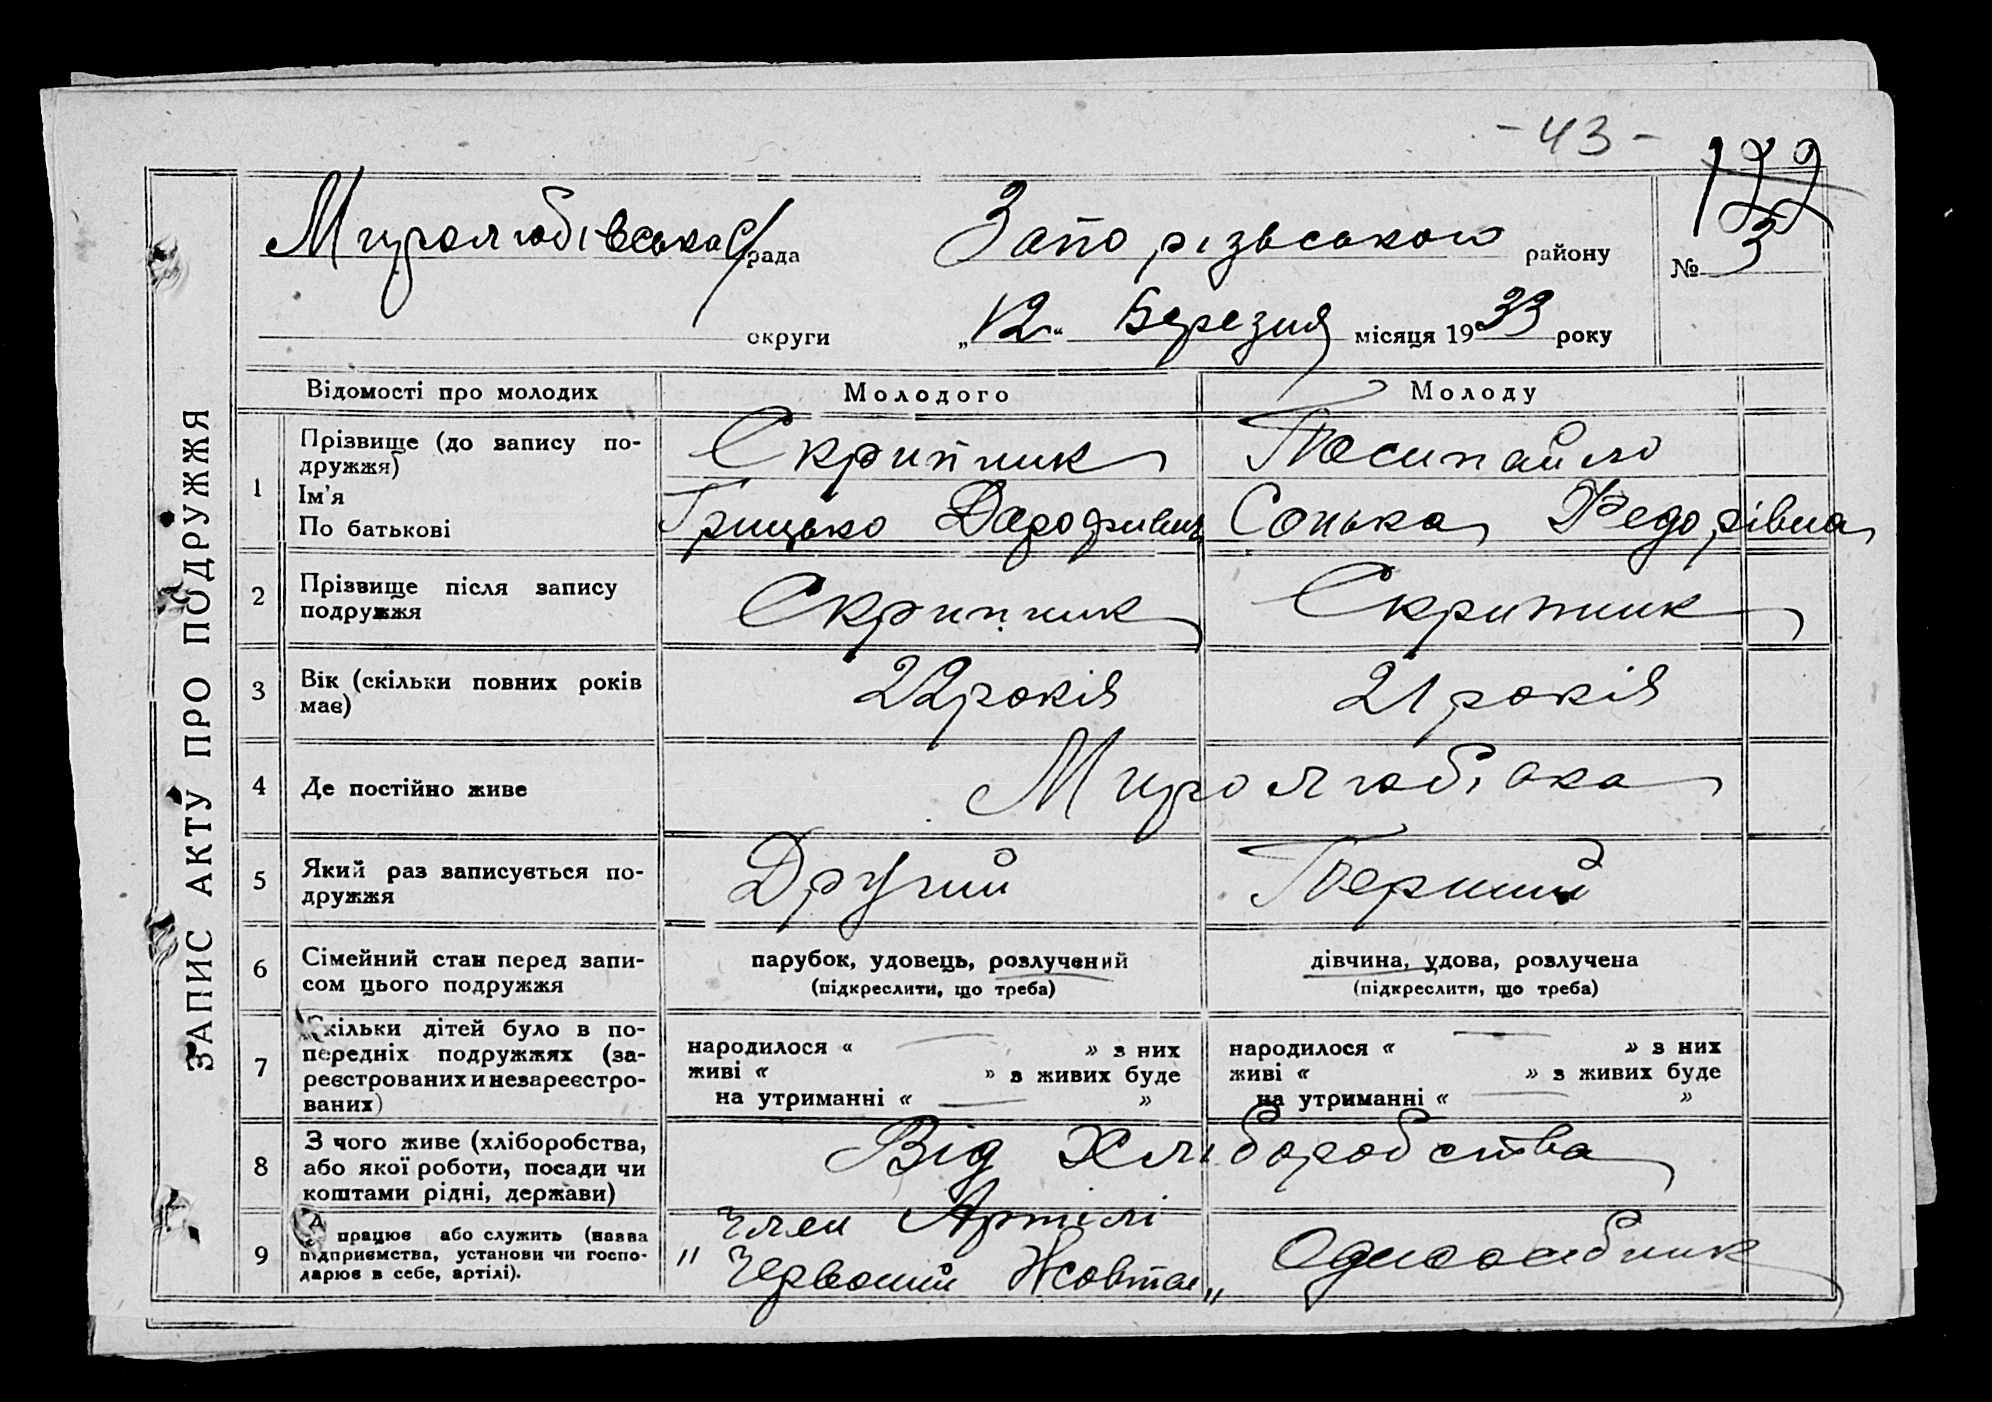 - 43 -
122
Миролюбівська с/рада Запорізького району № 3
округи „12“ Березня місяця 1933 року
ЗАПИС АКТУ ПРО ПОДРУЖЖЯ
Відомості про молодих Молодого Молоду
1 Прізвище (до запису по-
дружжя) Скрипник Посипайло
Ім’я
По батькові Грицько Дорофиевич Сонька Федорівна
2 Прізвище після запису
подружжя Скрипник Скрипник
3 Вік (скільки повних років
має) 22 років 21 років
4 Де постійно живе Миролюбівка
5 Який раз записується по-
дружжя Другий Перший
6 Сімейний стан перед запи-
сом цього подружжя
парубок, удовець, розлучений
(підкреслити, що треба)
дівчина, удова, розлучена
(підкреслити, що треба)
7 Скільки дітей було в по-
передніх подружжях (за-
реєстрованих и незареєстро-
ваних)
народилося « — » з них
живі « » з живих буде
на утриманні « — »
народилося « — » з них
живі « » з живих буде
на утриманні « — »
8 З чого живе (хліборобства,
або якої роботи, посади чи
коштами рідні, держави)
Від Хліборобства
9 працює або служить (назва
підприємства, установи чи госпо-
дарює в себе, артілі).
член Артілі
„Червоний Жовтень„
Одноосібник